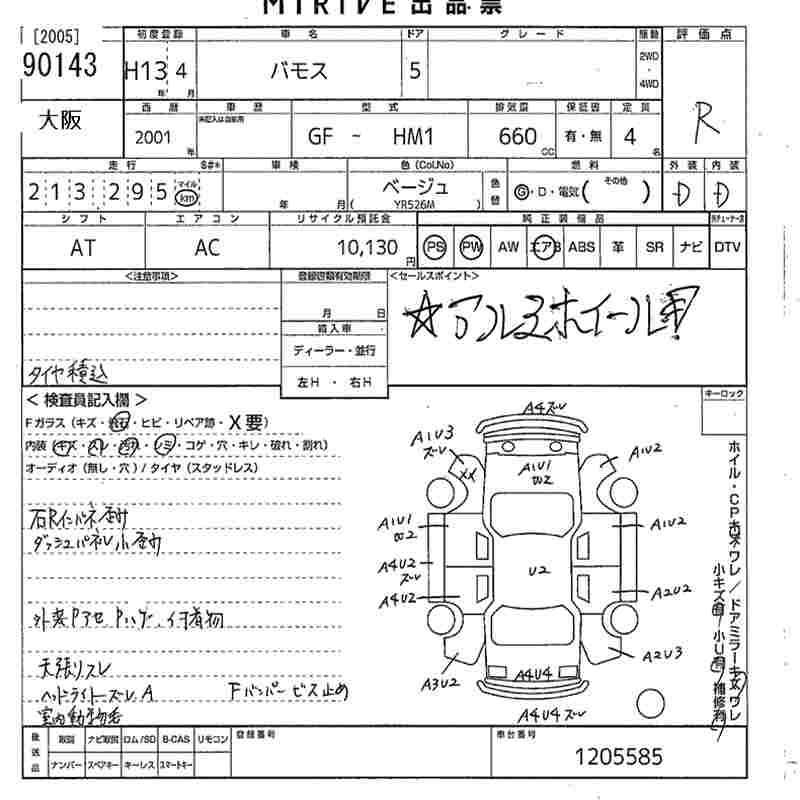 MIRIVE 出品票
[2005] 初度登録 車名 ドア グレード 駆動 評価点
90143 H13 4 バモス 5 2WD・4WD
年 月
大阪 西暦 車歴 型式 排気量 保証書 定員 R
未記入は自家用
2001 年 GF - HM1 660 cc 有・無 4 名
走行 S#* 車検 色 (Col.No) 燃料 外装 内装
213,295 マイル km 年 月 ベージュ 色替 G・D・電気 (その他) D D
( YR526M )
シフト エアコン リサイクル預託金 純正装備品
AT AC 10,130 円 PS PW AW エアB ABS 革 SR ナビ DTV
<注意事項> 登録書類有効期限 <セールスポイント>
月 日 ☆アルミホイール!
輸入車
ディーラー・並行
左H ・ 右H
タイヤ積込
<検査員記入欄> キーロック
Fガラス (キズ・飛石・ヒビ・リペア跡・X要)
内装 (キズ・スレ・汚れ・シミ・コゲ・穴・キレ・破れ・割れ)
オーディオ (無し・穴) / タイヤ (スタッドレス)
石Rインパネ歪み
ダッシュパネル小歪み
外装Pアセ Pハゲ、付着物
天張りスレ
ヘッドライトズレ、A Fバンパービス止め
室内動物毛
A4ズレ
A1U3
ズレ
XX
A1U1
W2
A1U2
A1U1
W2
A1U2
A4U2
ズレ
U2
A4U2
A2U2
A3U2
A4U4
A2U3
A4U4ズレ
ホイル・CP ワレ / ドアミラーキズワレ
小キズ有 / 小U有 / 補修有
後送品 取説 ナビ取説 ロム/SD B-CAS リモコン 登録番号 車台番号
ナンバー スペアキー キーレス スマートキー 1205585